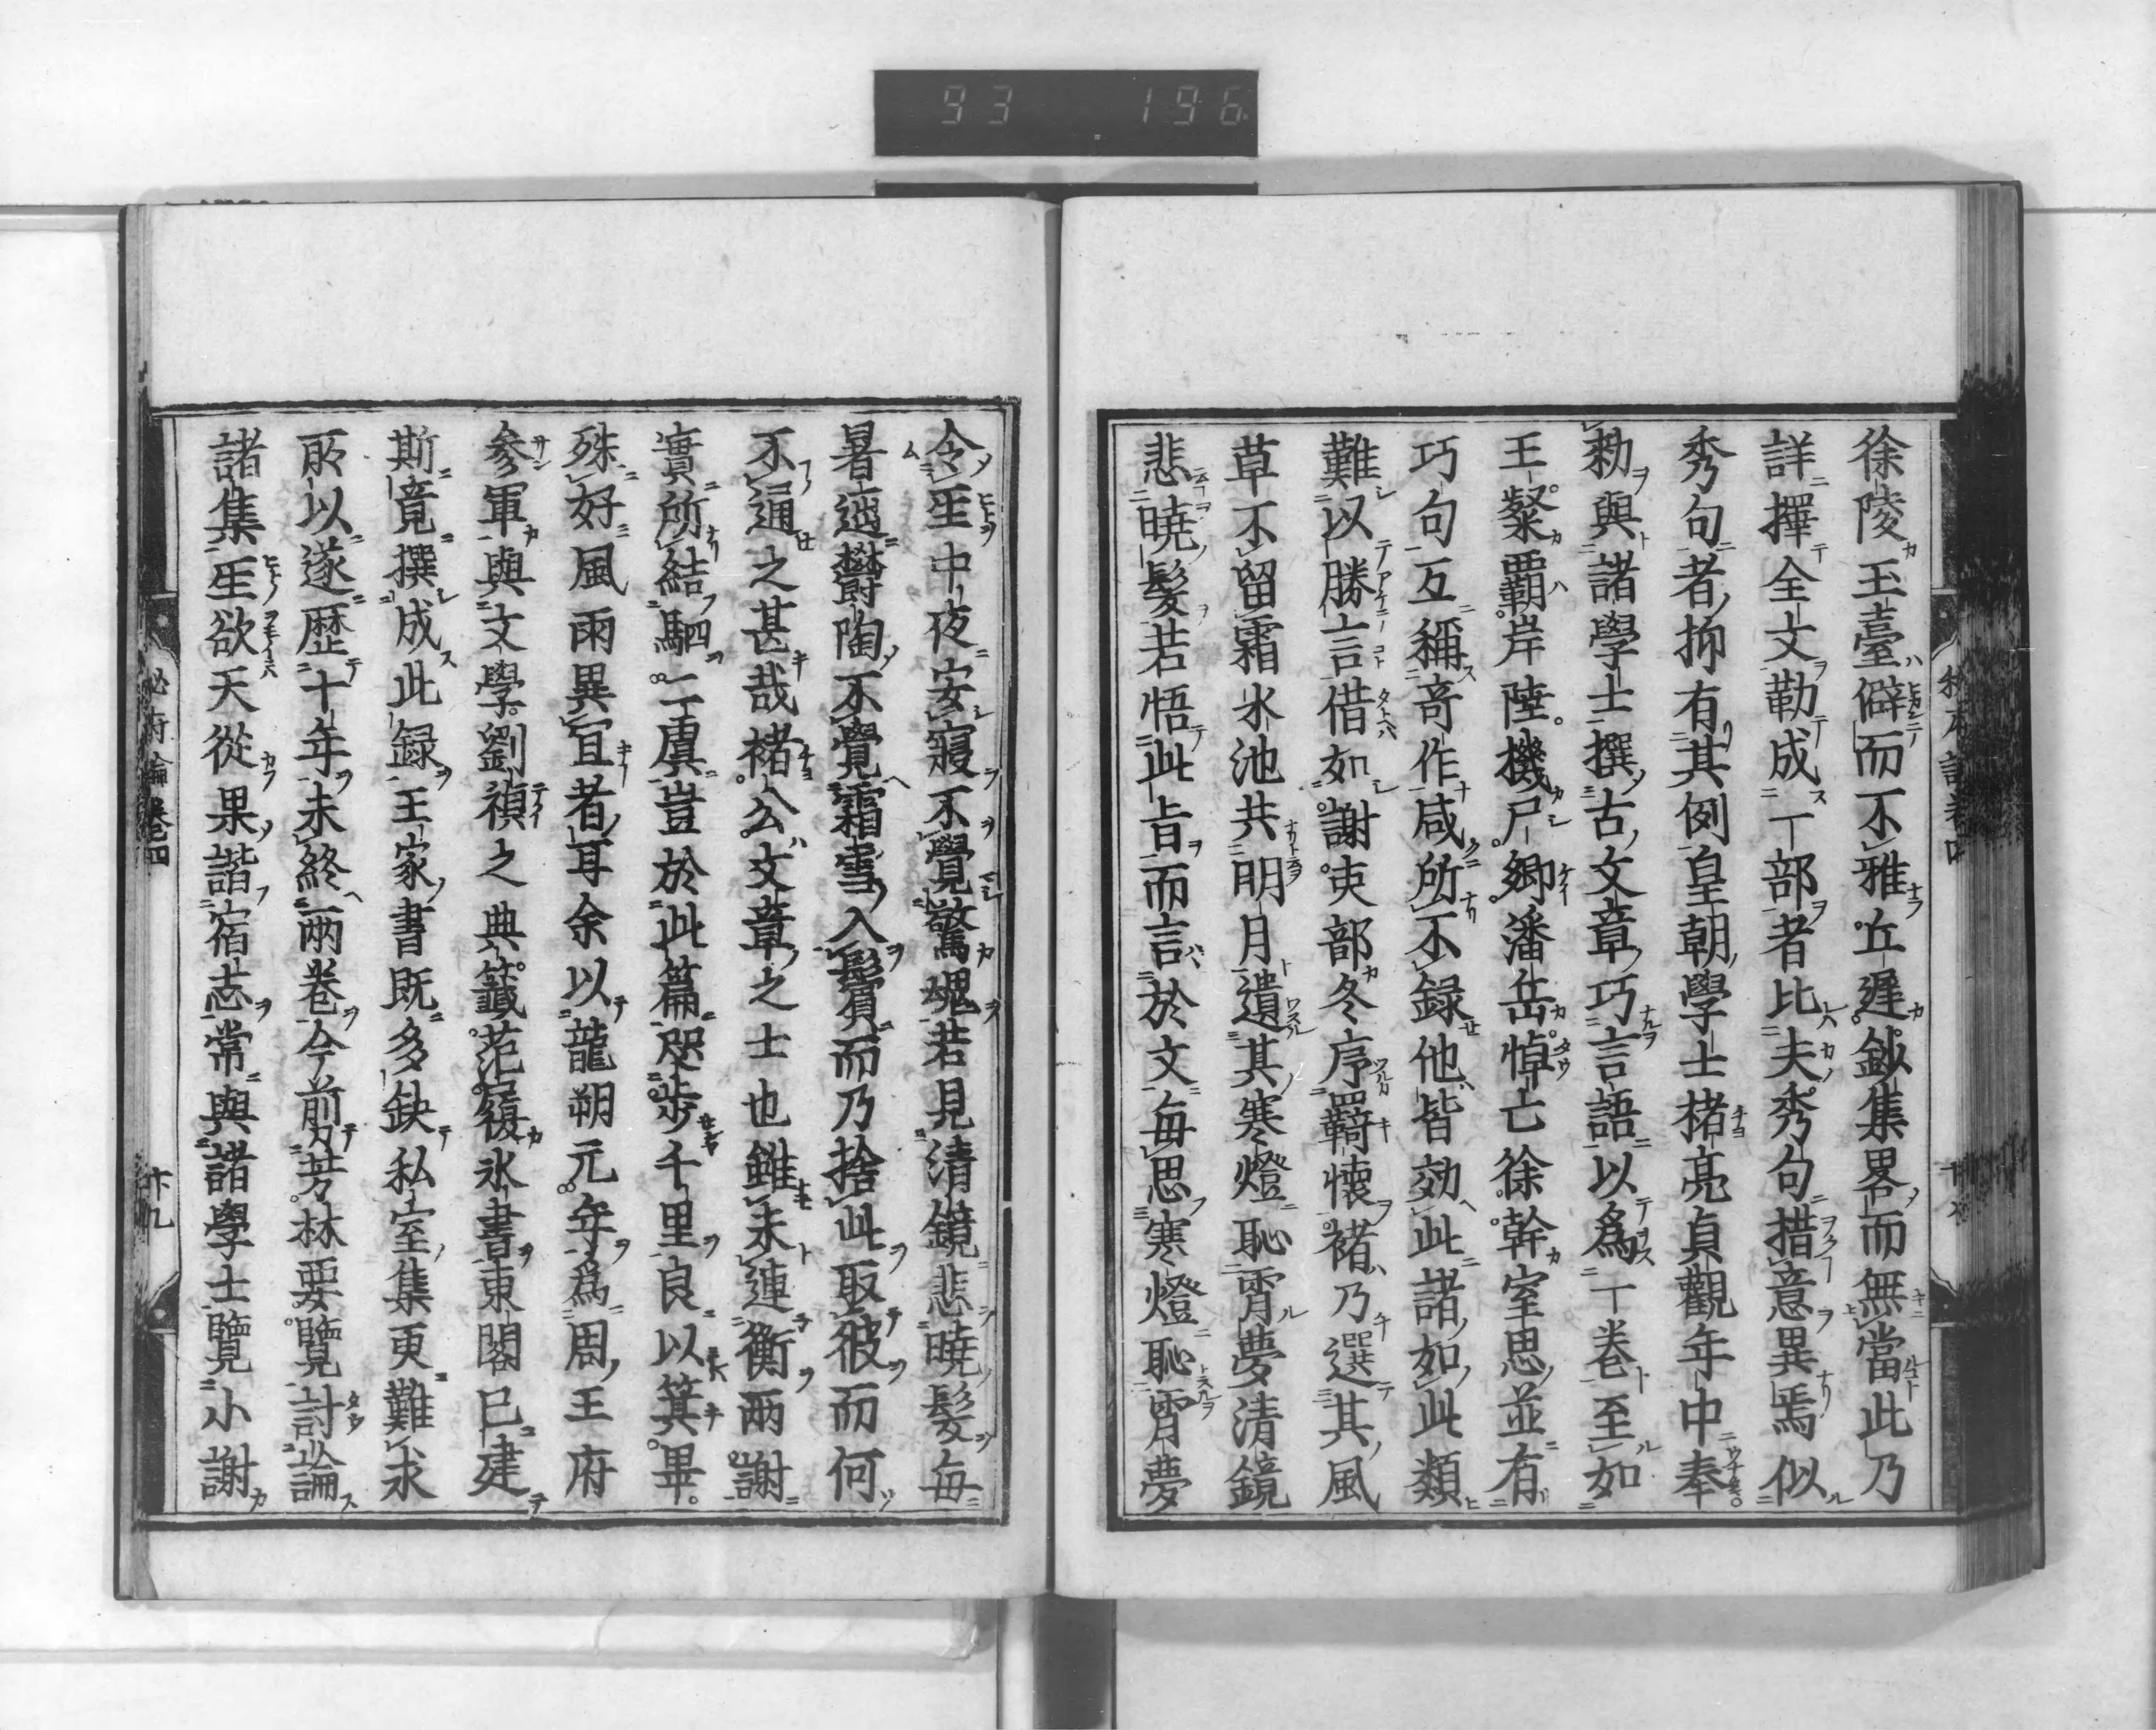 93 196
徐陵玉臺僻而不雅丘遲鈔集畧而無當此乃
詳擇全文勒成一部者比夫秀句措意異焉似
秀句者抑有其例皇朝學士褚亮貞觀年中奉
勑與諸學士撰古文章巧言語以爲一卷至如
王粲覇岸陸機尸卿潘岳悼亡徐幹室思並有
巧句互稱奇作咸所不録他皆效此諸如此類
難以勝言借如謝吏部冬序羇懷褚乃選其風
草不留霜氷池共明月遺其寒燈恥霄夢清鏡
悲曉髮若悟此旨而言於文每思寒燈恥霄夢
令人中夜安寢不覺驚魂若見清鏡悲曉髮每
暑遞欝陶不覺霜雪入鬢而乃捨此取彼而何
不通之甚哉褚公文章之士也雖未連衡兩謝
實所結駟二虞豈於此篇咫步千里良以箕畢
殊好風雨異宜者耳余以龍朔元年爲周王府
參軍與文學劉禎之典籤范履氷書東閣已建
斯竟撰成此録王家書既多缺私室集更難求
所以遂歴十年未終兩卷今前芳林要覽討論
諸集人欲天從果諧宿志常與諸學士覽小謝